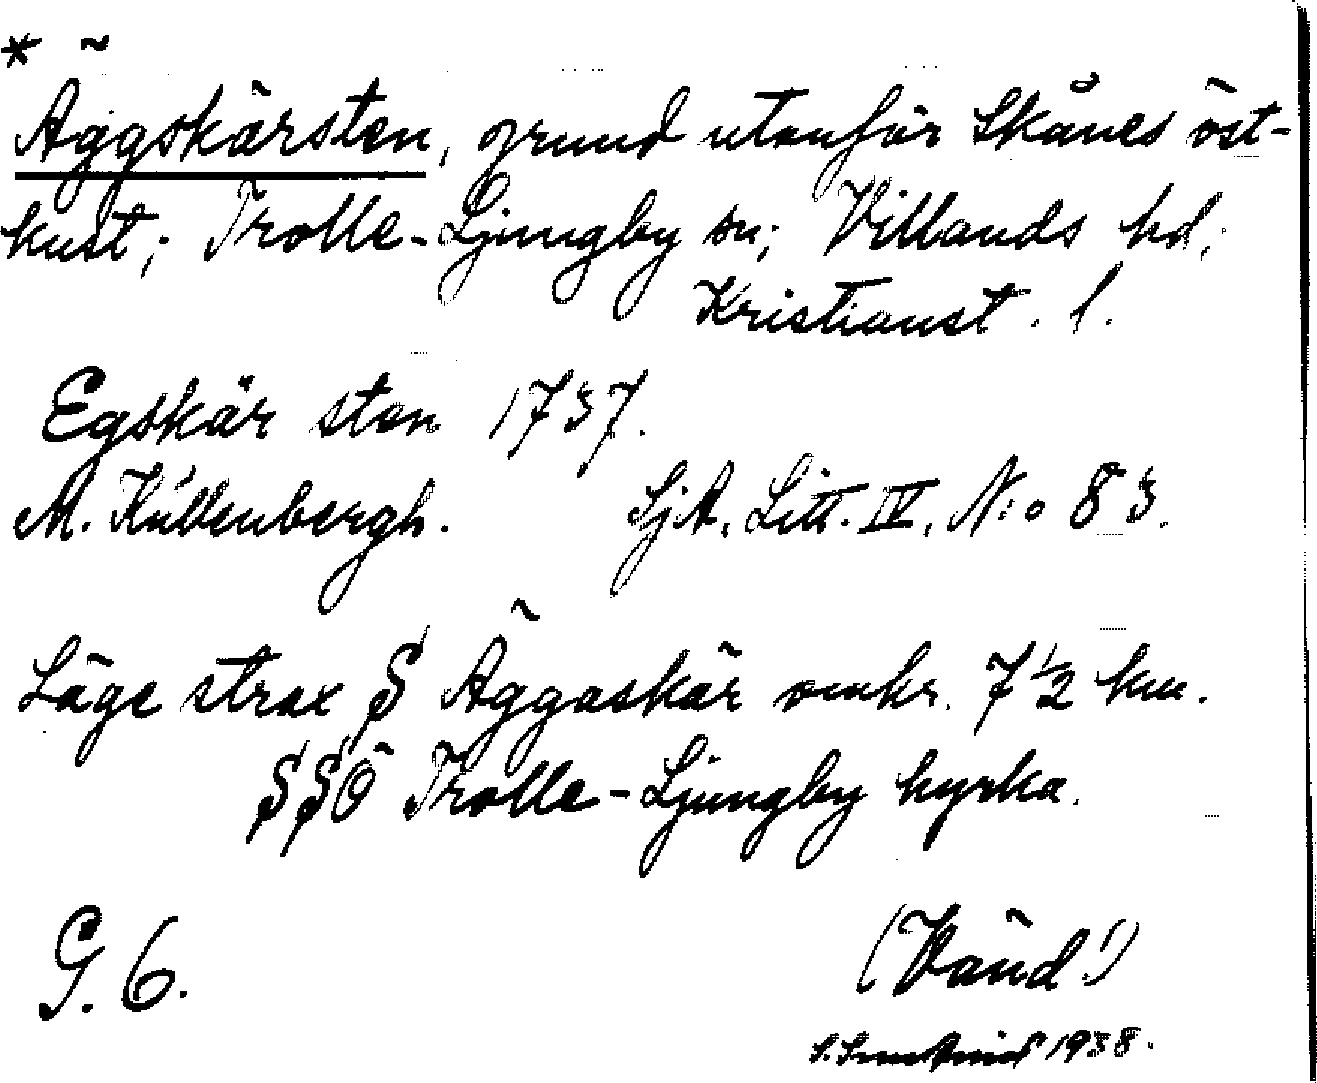 * Äggskärsten, grund utanför Skånes öst-
kust; Trolle-Ljungby sn; Villands hd;
Kristianst. l.
Egskär sten 1737.
M. Küllenbergh. SjA, Litt. IV, N:o 83.
Läge strax S Äggaskär omkr. 7 1/2 km.
SSÖ Trolle-Ljungby kyrka.
G. 6. (Vänd!)
1938.